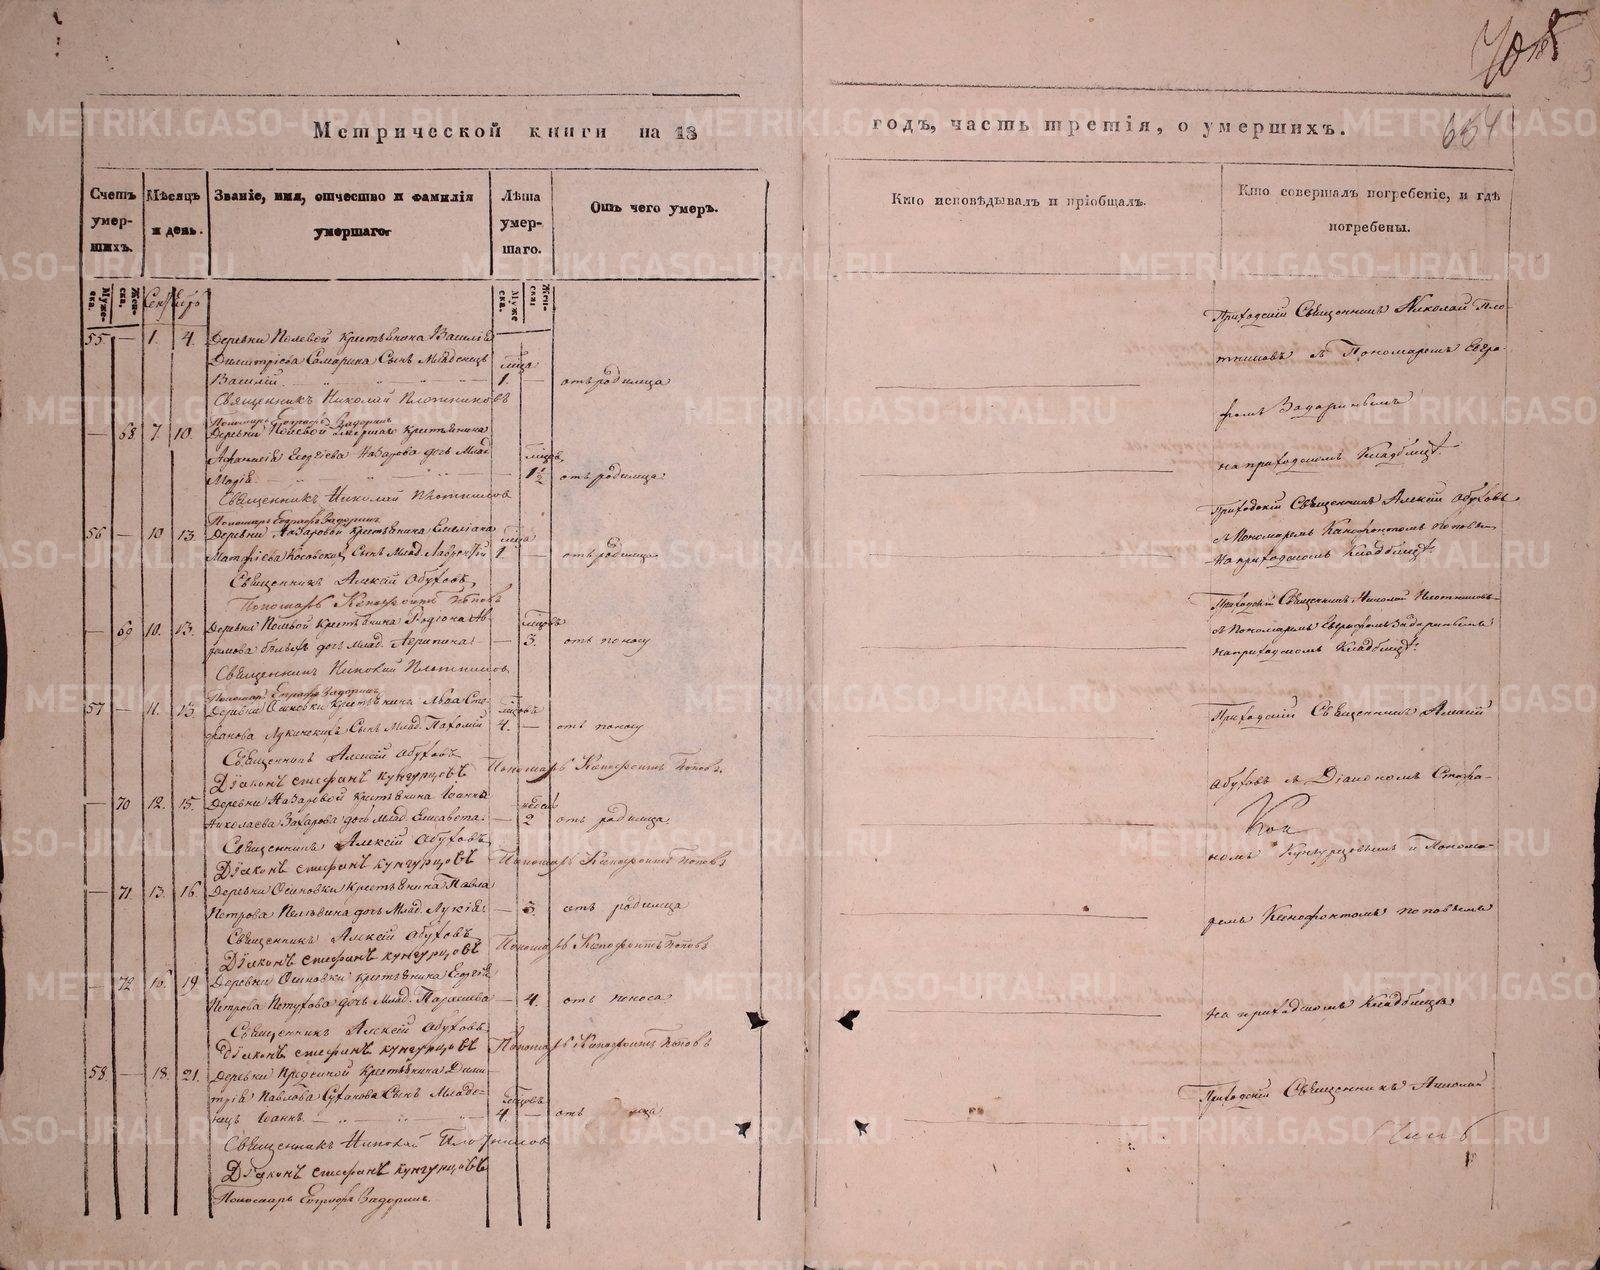 Метрической книги на 18
годъ, часть третія, о умершихъ.
654
Счетъ умер-шихъ.
Мѣсяцъ и день.
Званіе, имя, отчество и фамилія умершаго
Лѣта умер-шаго.
Отъ чего умеръ.
Кто исповѣдывалъ и пріобщалъ.
Кто совершалъ погребеніе, и гдѣ погребены.
Муже-ска.
Жен-ска.
Муже
Жен-ска:
55 — 1. 4. Деревни Полевой крестьянина Василія
Димитріева Самарина сынъ младенецъ
Василій. 1. — отъ родимца
Священникъ Николай Плотниковъ
Пономарь Евграфъ Задоринъ
— 68 7. 10. Деревни крестьянина
Георгіева Назарова дочь млад.
1½ отъ родимца
Священникъ Николай Плотниковъ
Пономарь Евграфъ Задоринъ
56 — 10 13. Деревни Назаровой крестьянина Емеліана
сынъ млад. 1 — отъ родимца
Священникъ Алексій Обуховъ
Пономарь Ксенофонтъ Поповъ
— 69 10. 13. Деревни Полевой крестьянина Родіона Ав-
рамова Бѣлыхъ дочь млад. Агрипина — 3. отъ поносу
Священникъ Николай Плотниковъ
Пономарь Евграфъ Задоринъ
57 — 11. 13. Деревни Осиновки крестьянина Льва Сте-
фанова сынъ млад. Пахомій 4. — отъ поносу
Священникъ Алексій Обуховъ
Діаконъ Стефанъ Кунгурцовъ Пономарь Ксенофонтъ Поповъ.
— 70 12. 15. Деревни Назаровой крестьянина Іоанна
Николаева Захарова дочь млад. Елисавета. — 2 отъ родимца
Священникъ Алексій Обуховъ
Діаконъ Стефанъ Кунгурцовъ Пономарь Ксенофонтъ Поповъ
— 71 13. 16. Деревни Осиновки крестьянина Павла
Петрова дочь млад. Лукія. — 3. отъ родимца
Священникъ Алексій Обуховъ
Діаконъ Стефанъ Кунгурцовъ Пономарь Ксенофонтъ Поповъ
— 72 16. 19 Деревни Осиновки крестьянина Георгія
Петрова Петухова дочь млад. Параскева — 4. отъ поноса
Священникъ Алексій Обуховъ
Діаконъ Стефанъ Кунгурцовъ Пономарь Ксенофонтъ Поповъ
58. — 18. 21. Деревни крестьянина Дими-
трія Павлова Суханова сынъ младе-
нецъ Іоаннъ. 4. — отъ
Священникъ Николай Плотниковъ
Діаконъ Стефанъ Кунгурцовъ
Пономарь Евграфъ Задоринъ.
Приходскій Священникъ Николай Пло-
тниковъ съ Пономаремъ Евгра-
фомъ Задоринымъ
на приходскомъ кладбищѣ.
Приходскій Священникъ Алексій Обуховъ
съ Пономаремъ Ксенофонтомъ Поповымъ
на приходскомъ кладбищѣ.
Приходскій Священникъ Николай Плотниковъ
съ Пономаремъ Евграфомъ Задоринымъ
на приходскомъ кладбищѣ.
Приходскій Священникъ Алексій
Обуховъ съ Діакономъ Стефа-
номъ Кунгурцовымъ и Понома-
ремъ Ксенофонтомъ Поповымъ
на приходскомъ кладбищѣ
Приходскій Священникъ Николай
METRIKI.GASO-URAL.RU